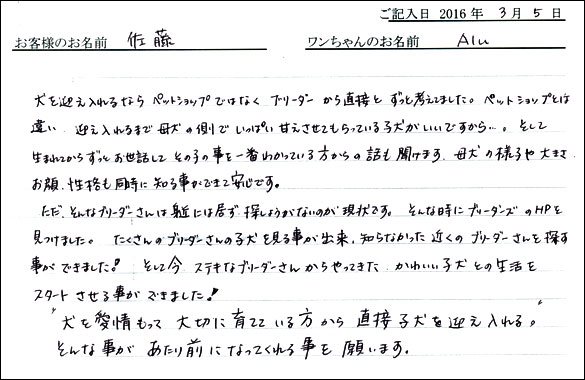 ご記入日 2016 年 3 月 5 日
お客様のお名前 佐藤 ワンちゃんのお名前 Alu
犬を迎え入れるなら ペットショップではなく ブリーダー から直接と ずっと考えてました。ペットショップとは
違い 迎え入れるまで母犬の側で いっぱい 甘えさせてもらっている子犬がいいですから…。そして
生まれてからずっとお世話して その子の事を一番わかっている方からの話も聞けます。母犬の様子や大きさ
お顔、性格も同時に知る事ができて安心です。
ただ、そんなブリーダーさんは身近には居ず 探しようがないのが現状です。そんな時にブリーダーズのHPを
見つけました。たくさんのブリーダーさんの子犬を見る事が出来、知らなかった 近くのブリーダーさんを探す
事ができました! そして今 ステキなブリーダーさんからやってきた かわいい子犬との生活を
スタートさせる事ができました!
"犬を愛情もって 大切に育てている方から 直接子犬を迎え入れる。"
そんな事が あたり前になってくれる事を願います。